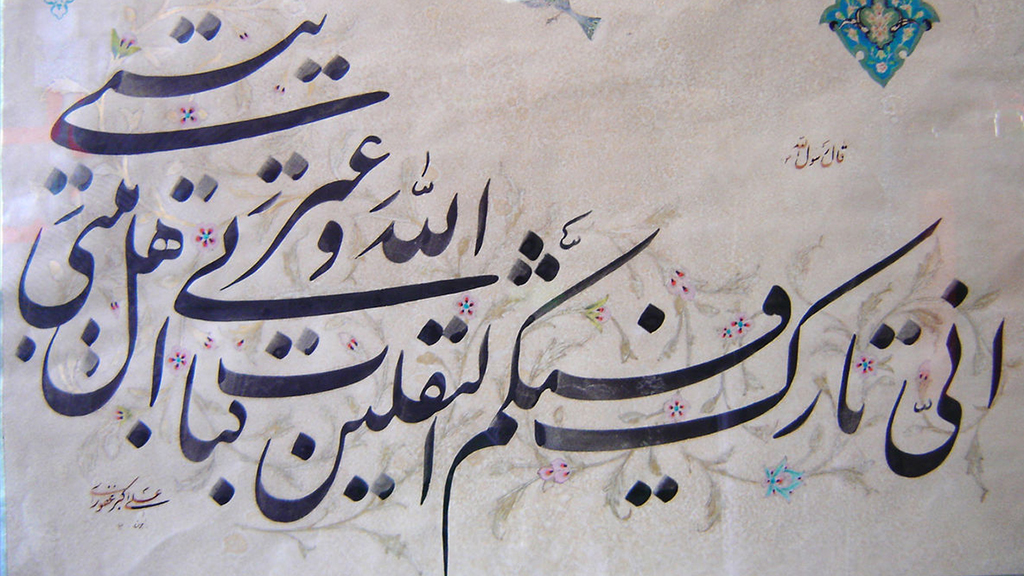 قال رسول الله ص
انّی تارک فیکم الثقلین کتاب الله و عترتی اهل بیتی
بیتی
علی اکبر غفوری